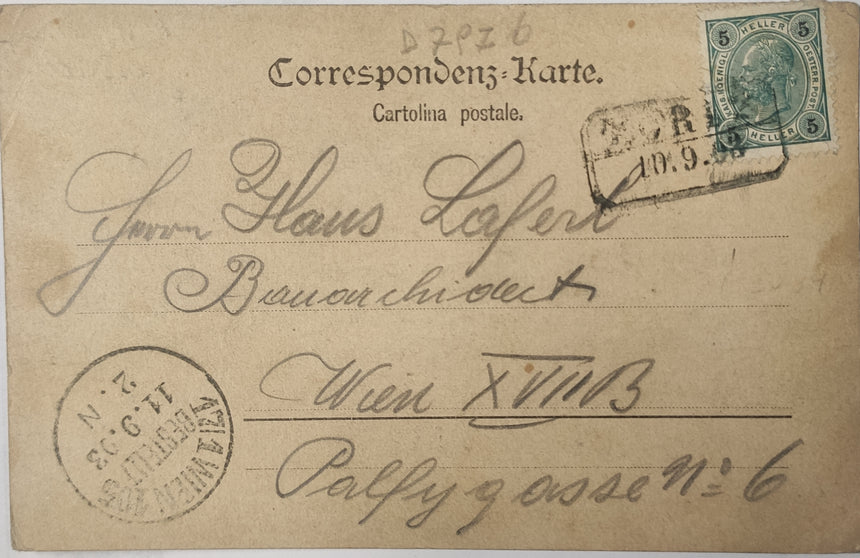 D 7PI 6
Correspondenz-Karte.
Cartolina postale.
5 HELLER 5
KAIS. KOENIGL. OESTERR. POST.
5 HELLER 5
10.9.
Herrn Hans Laferl
Bauarchidect
Wien XVIII B
Palfygasse No: 6
17/1 WIEN
BESTELLT
11.9.03
2. N